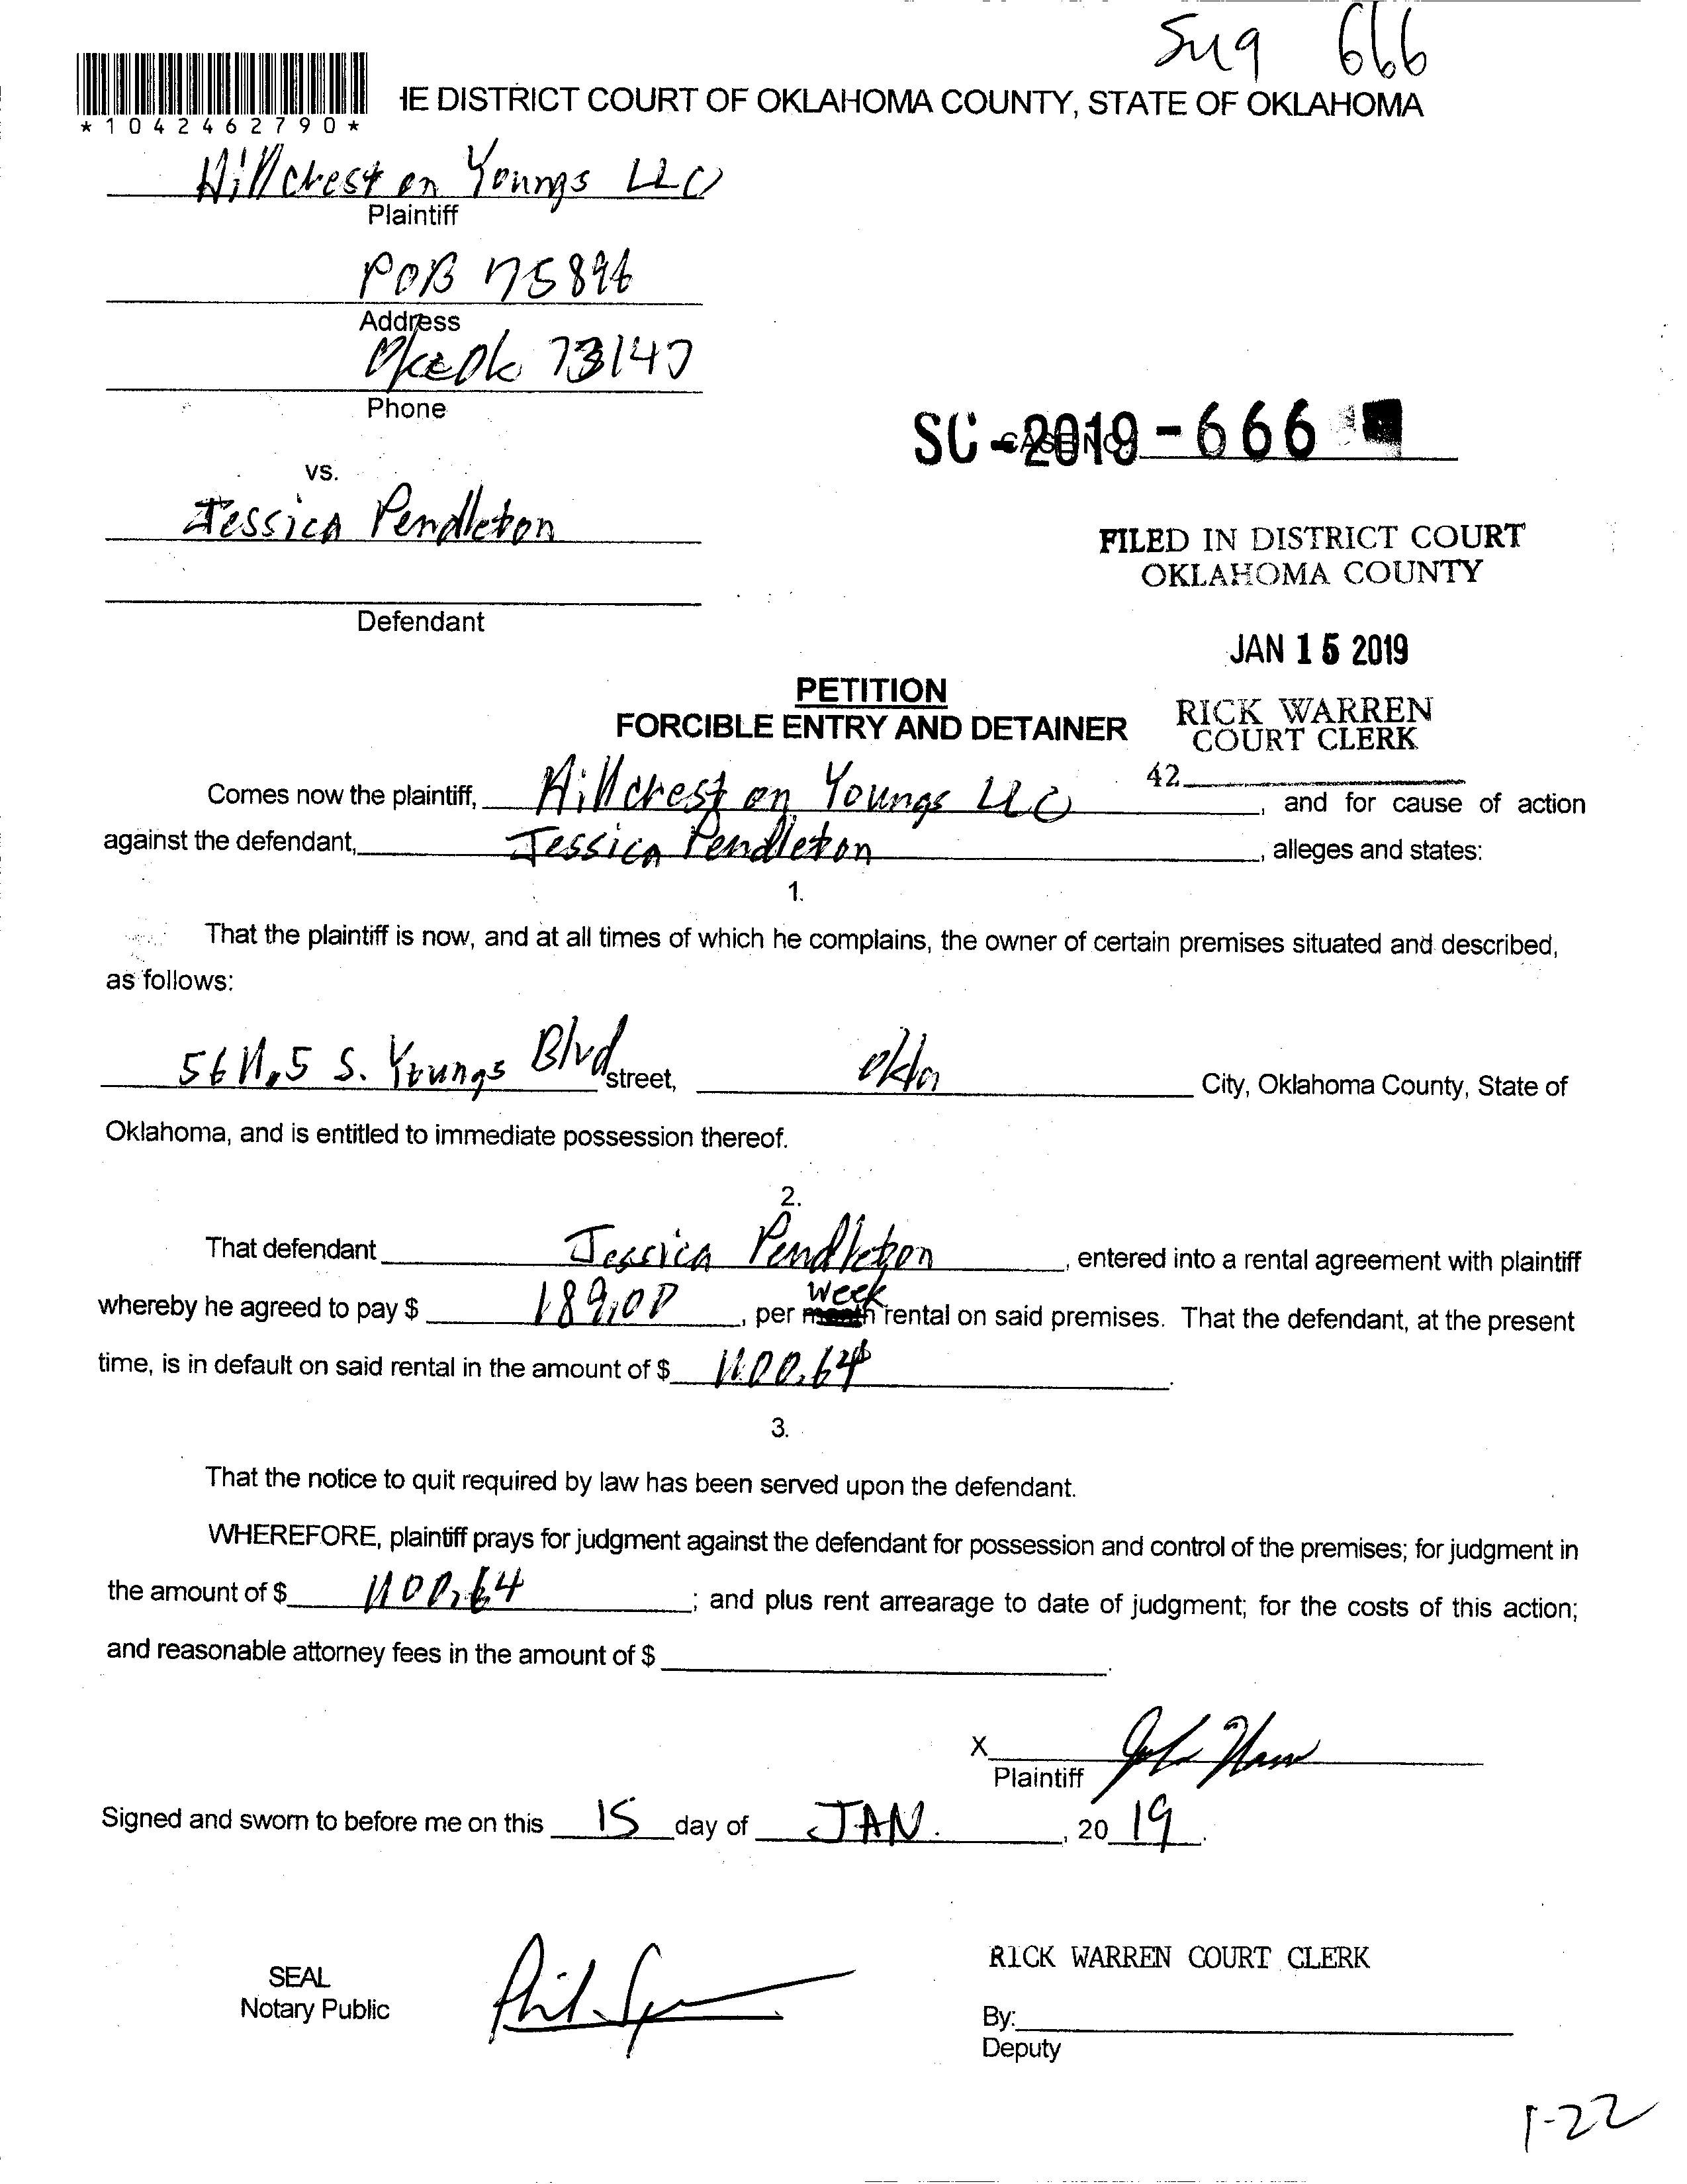 Sm9 666
*1042462790*
HE DISTRICT COURT OF OKLAHOMA COUNTY, STATE OF OKLAHOMA
Hillcrest on Youngs LLC
Plaintiff
POB 75896
Address
Okc Ok 73147
Phone
SC-2019-666
CASE NO.
vs.
Jessica Pendleton
FILED IN DISTRICT COURT
OKLAHOMA COUNTY
Defendant
JAN 15 2019
PETITION
FORCIBLE ENTRY AND DETAINER
RICK WARREN
COURT CLERK
42
Comes now the plaintiff, Hillcrest on Youngs LLC, and for cause of action
against the defendant, Jessica Pendleton, alleges and states:
1.
That the plaintiff is now, and at all times of which he complains, the owner of certain premises situated and described,
as follows:
S. Youngs Blvd street, Okla City, Oklahoma County, State of
Oklahoma, and is entitled to immediate possession thereof.
2.
That defendant Jessica Pendleton, entered into a rental agreement with plaintiff
whereby he agreed to pay $ 189.00, per month Week rental on said premises. That the defendant, at the present
time, is in default on said rental in the amount of $ 1100.64.
3.
That the notice to quit required by law has been served upon the defendant.
WHEREFORE, plaintiff prays for judgment against the defendant for possession and control of the premises; for judgment in
the amount of $ 1100.64; and plus rent arrearage to date of judgment; for the costs of this action;
and reasonable attorney fees in the amount of $.
X
Plaintiff
Signed and sworn to before me on this 15 day of JAN., 20 19.
SEAL
Notary Public
RICK WARREN COURT CLERK
By:
Deputy
1-22